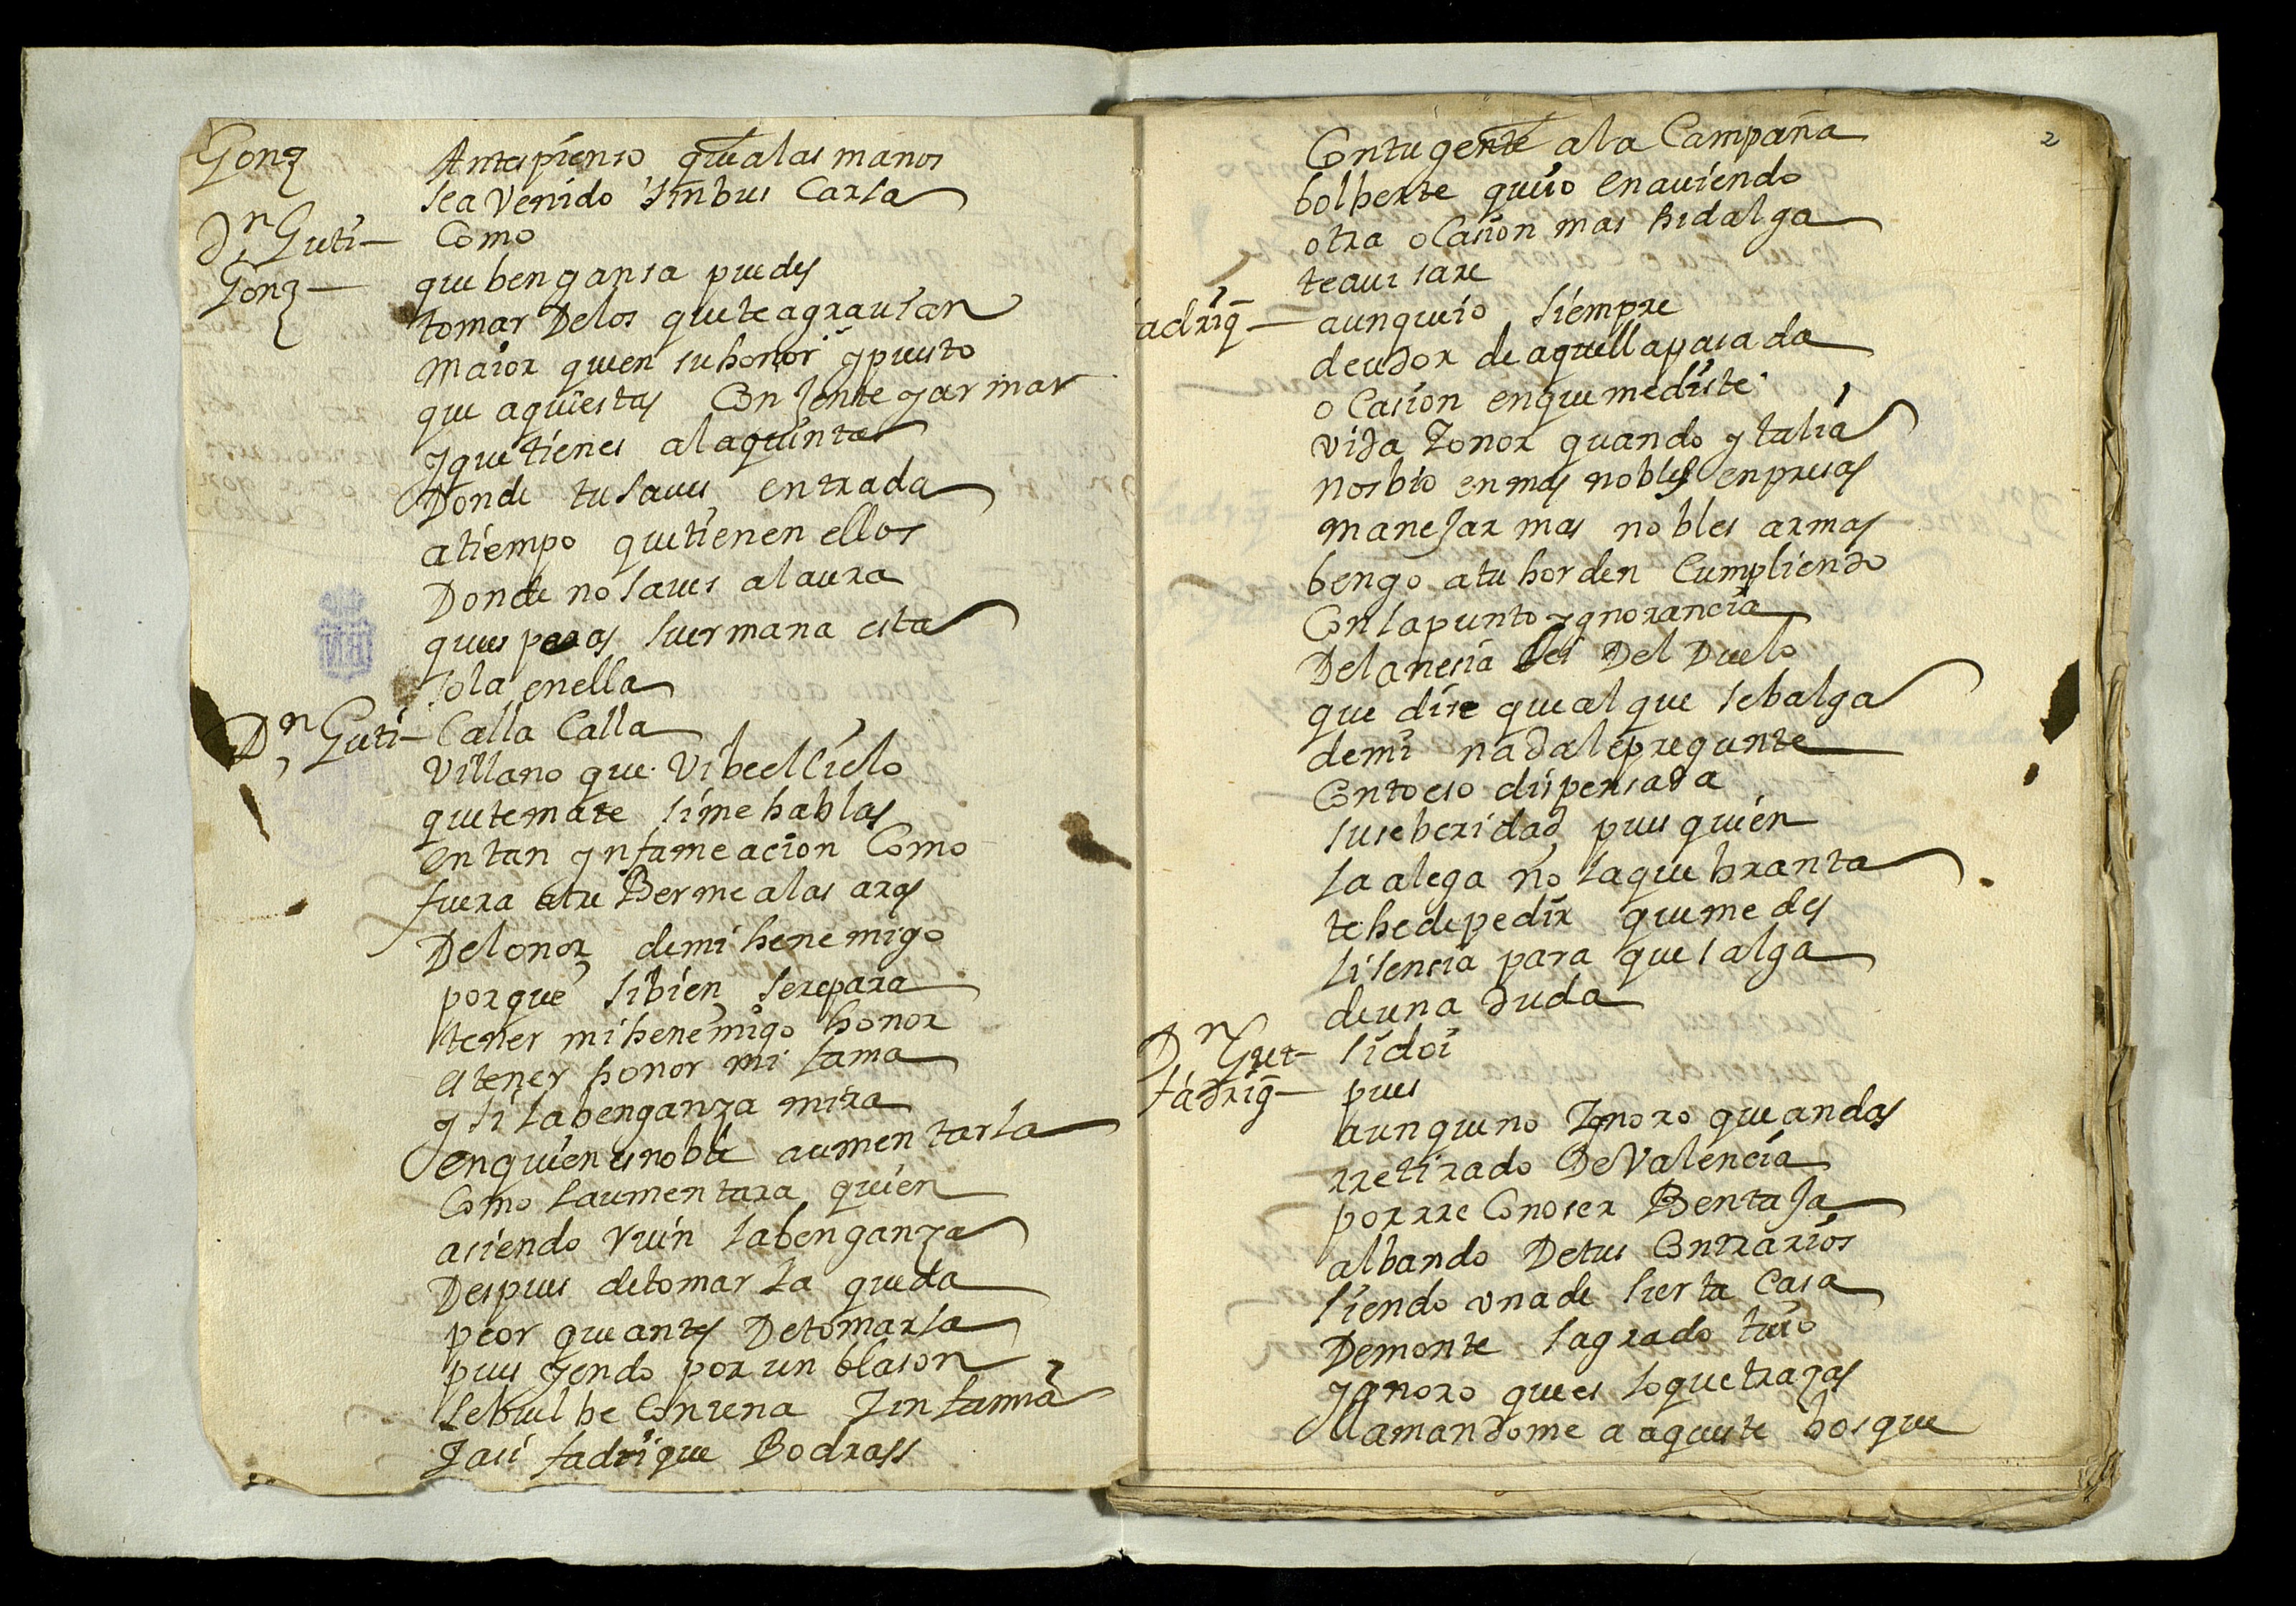 Gonz Antes pienso que a las manos
sea venido sinbus Carla
Dn Guti— Como
Gonz— que bengansa puedes
tomar Delos que te agrauian
maior que en su honor ypuesto
que aqui estas Con Jente y armas
y que tienes ala quinta
Donde tu saues entrada
a tiempo que tienen ellos
Donde no saues alaura
que es su ermana esta
sola en ella
Dn Guti— Calla Calla
villano que Vibe el Cielo
que te mate si me hablas
en tan ynfame acion Como
fuera atre Berme a las aras
Del onor de mi henemigo
porque si bien se repara
tener mi henemigo honor
es tener honor mi fama
y si la benganza mira
en quien es noble aumentarla
Como la umentara quien
asiendo ruin la benganza
Despues de tomar la queda
peor que antes De tomarla
pues yendo por un blason
se buelbe Con una Infamia
Y asi fadrique Bodrass
2
Con tu gente a la Campaña
bolberte que io en auiendo
otra oCasion mas hidalga
te auisare
fadriq— aunque io siempre
deudor de aquella pasada
oCasion en que me diste
vida Y onor quando ytalia
nos bio en mas nobles enpresas
maneJar mas nobles armas
bengo a tu horden Cumpliendo
Con la punto ygnorancia
De la nesia lei Del Duelo
que dise que al que se balga
de mi nada le pregunte
Con to eso dispensada
su seberidad pues quien
la alega no la quebranta
te he de pedir que me des
lisensia para que salga
de una duda
Dn Gut— Si doi
fadriq— pues
aunque no Ygnoro que andas
rretirado De Valencia
por rreConoser BentaJa
al bando De tus Contrarios
siendo una desierta Casa
De monte sagrado tuio
ygnoro que es lo que trazas
llamandome a aqueste bosque